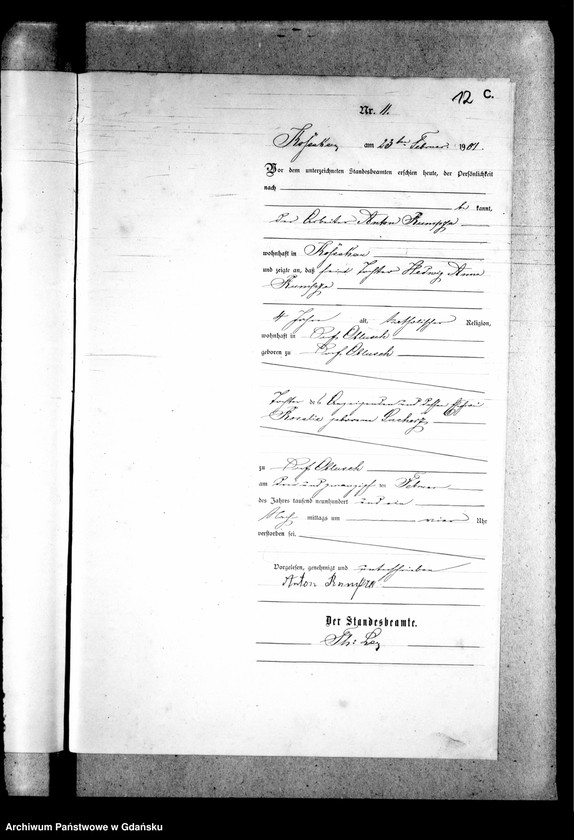 12 C.
Nr. 11.
am 23ten Februar 1901.
Vor dem unterzeichneten Standesbeamten erschien heute, der Persönlichkeit
nach
be kannt,
der Arbeiter Anton
wohnhaft in
und zeigte an, daß seine Tochter Hedwig Anna
4 Jahre alt, katholischer Religion,
wohnhaft in Dorf
geboren zu Dorf
Tochter des Anzeigenden und dessen Ehefrau
Rosalie geborenen
zu Dorf
am drei und zwanzigsten Februar
des Jahres tausend neunhundert und ein
Nach mittags um vier Uhr
verstorben sei.
Vorgelesen, genehmigt und unterschrieben
Anton
Der Standesbeamte.
Archiwum Państwowe w Gdańsku